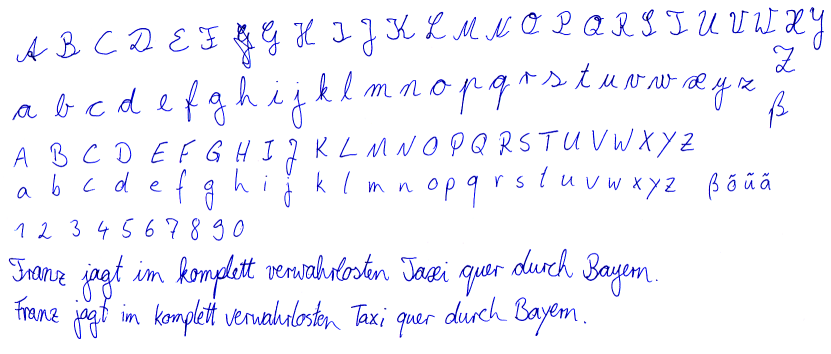 A B C D E F G H I J K L M N O P Q R S T U V W X Y Z
a b c d e f g h i j k l m n o p q r s t u v w x y z ß
A B C D E F G H I J K L M N O P Q R S T U V W X Y Z
a b c d e f g h i j k l m n o p q r s t u v w x y z ß õ ũ ã
1 2 3 4 5 6 7 8 9 0
Franz jagt im komplett verwahrlosten Taxi quer durch Bayern.
Franz jagt im komplett verwahrlosten Taxi quer durch Bayern.